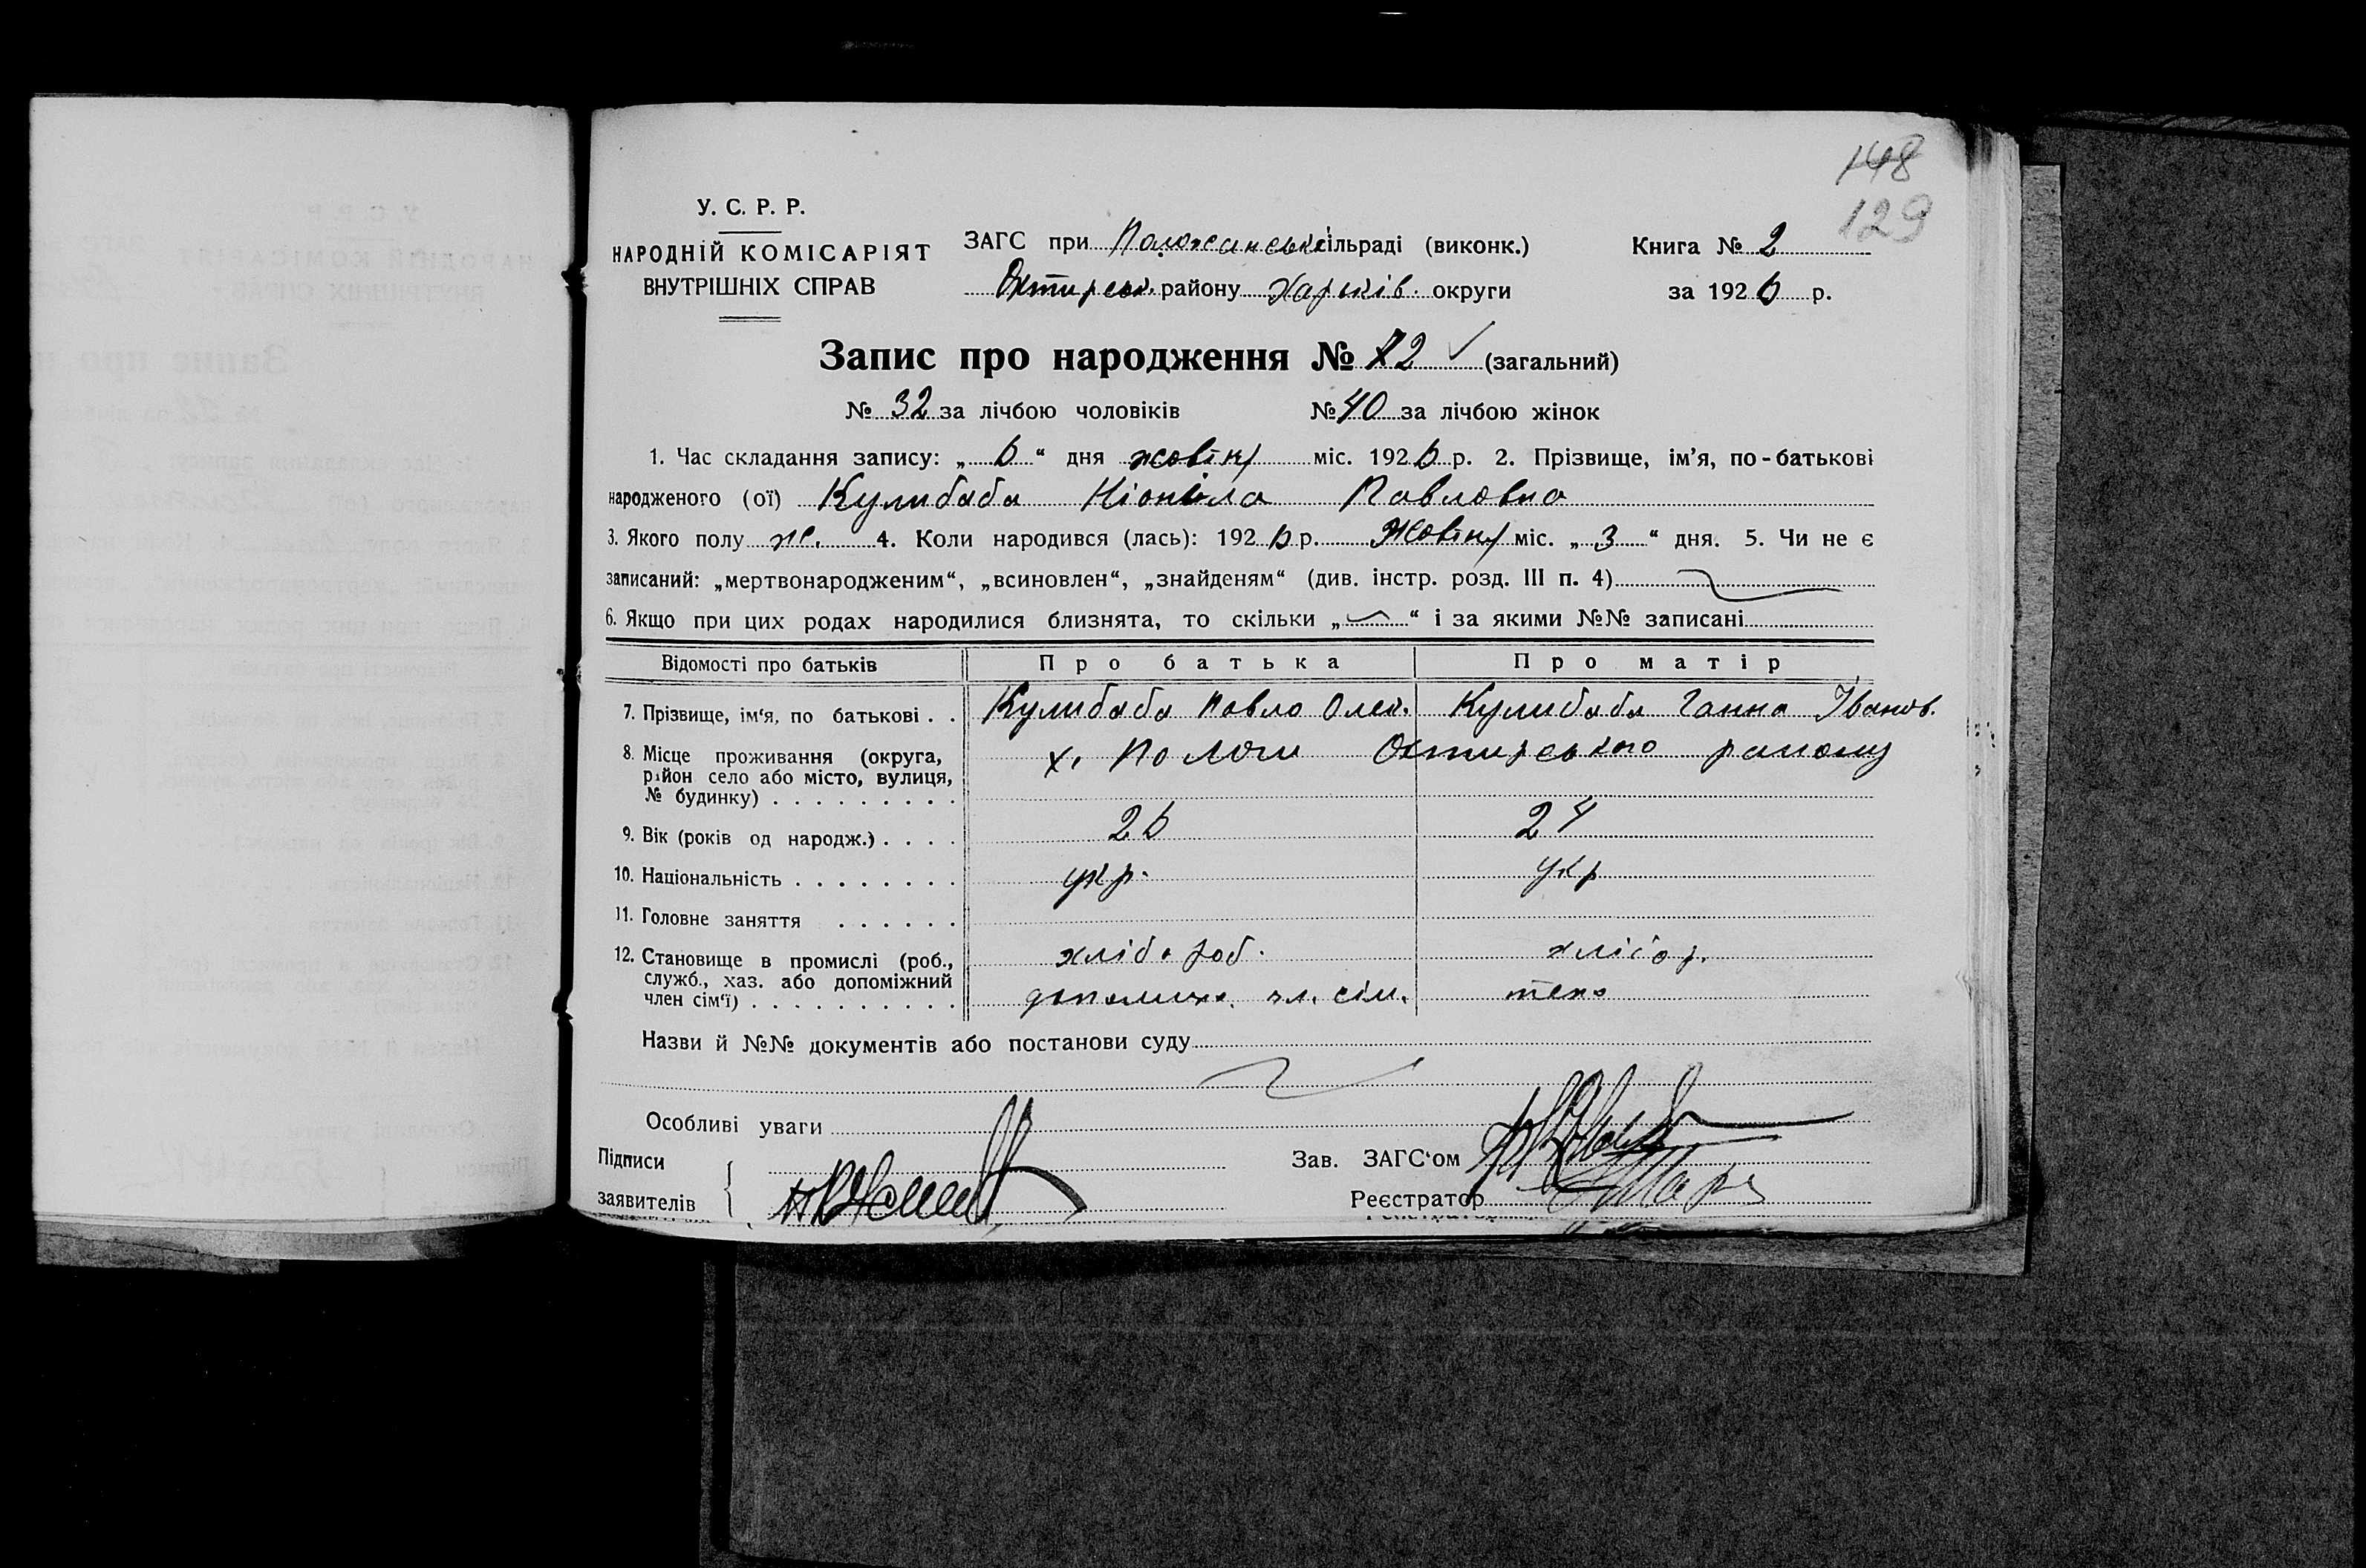 148
129
У. С. Р. Р.
НАРОДНІЙ КОМІСАРІЯТ
ВНУТРІШНІХ СПРАВ
ЗАГС при сільраді (виконк.)
Охтирськ. району Харьків. округи
Книга № 2
за 1926 р.
Запис про народження № 72 (загальний)
№ 32 за лічбою чоловіків № 40 за лічбою жінок
1. Час складання запису: „ 6 “ дня жовтн міс. 1926 р. 2. Прізвище, ім’я, по-батькові
народженого (ої) Кулибаба Павловна
3. Якого полу ж. 4. Коли народився (лась): 1926 р. Жовтн міс. „ 3 “ дня. 5. Чи не є
записаний: „мертвонародженим“, „всиновлен“, „знайденям“ (див. інстр. розд. III п. 4)
6. Якщо при цих родах народилися близнята, то скільки „ “ і за якими №№ записані
Відомості про батьків Про батька Про матір
7. Прізвище, ім‘я, по батькові . . Кулибаба Павло Олек. Кулибаба Ганна Іванов.
8. Місце проживання (округа, х. Пологи Охтирського району
район село або місто, вулиця,
№ будинку) . . . . . . . . .
9. Вік (років од народж.) . . . . 26 24
10. Національність . . . . . . . . укр. укр
11. Головне заняття . . . . . .
12. Становище в промислі (роб., хлібороб. хлібор.
служб., хаз. або допоміжний
член сім‘ї) . . . . . . . . . . допоміж. чл. сім. теж
Назви й №№ документів або постанови суду
Особливі уваги
Підписи
заявителів
Зав. ЗАГС‘ом
Реєстратор